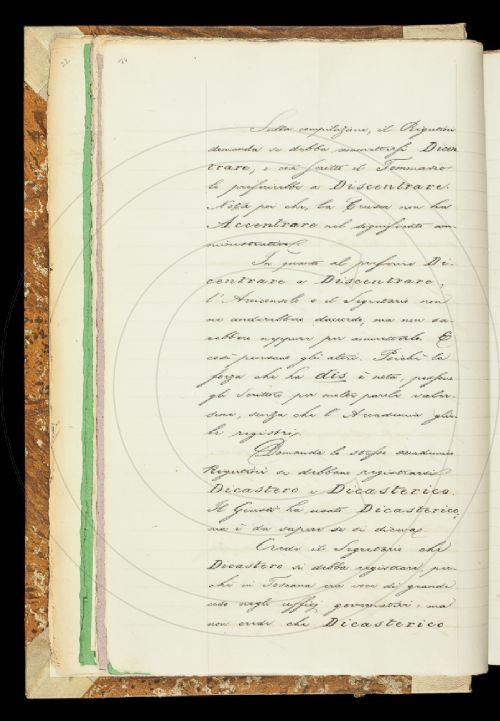 Sulla compilazione, il Rigutini
domanda se debba ammettersi Dicen
trare, e così scritto il Tommaseo
lo preferirebbe a Discentrare.
Nota poi che, la Crusca non ha
Accentrare nel significato am-
ministrativo.
In quanto al preferire Di-
centrare a Discentrare,
l'Arciconsolo e il Segretario non
ne anderebbero d'accordo, ma non sa-
rebbero neppure per ammetterlo. E
così pensano gli altri. Perchè la
forza che ha dis è nota, possono
gli Scrittori per molte parole valer-
sene, senza che l'Accademia glie-
le registri.
Domanda lo stesso accademico
Rigutini se debbano registrarsi
Dicastero e Dicasterico.
Il Giusti ha usato Dicasterico,
ma è da sapere se si diceva.
Crede il Segretario che
Dicastero si debba registrare, per-
chè in Toscana era voce di grande
uso negli uffizj governativi; ma
non crede che Dicasterico